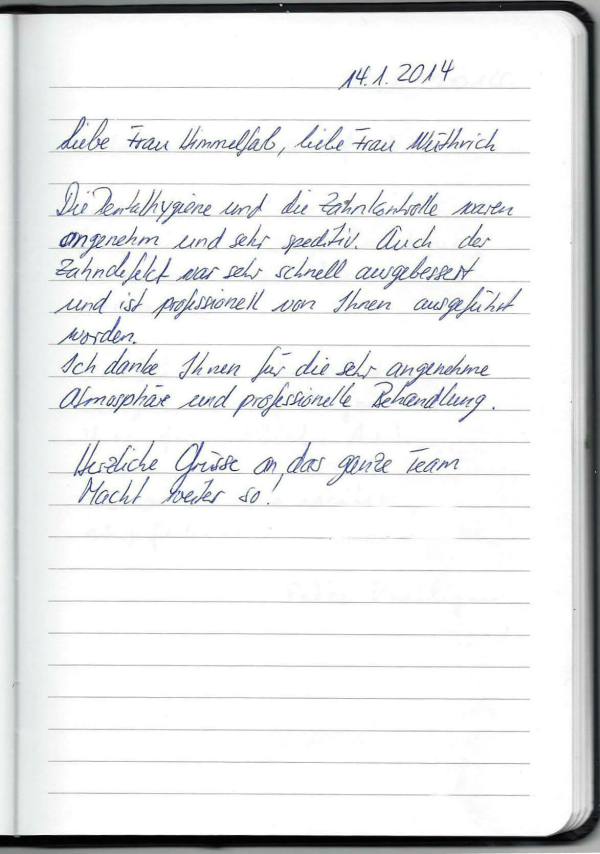 14.1.2014
Liebe Frau Himmelfab, liebe Frau Wüthrich
Die Dentalhygiene und die Zahnkontrolle waren
angenehm und sehr speditiv. Auch der
Zahndefekt war sehr schnell ausgebessert
und ist professionell von Ihnen ausgeführt
worden.
Ich danke Ihnen für die sehr angenehme
Atmosphäre und professionelle Behandlung.
Herzliche Grüsse an das ganze Team
Macht weiter so!